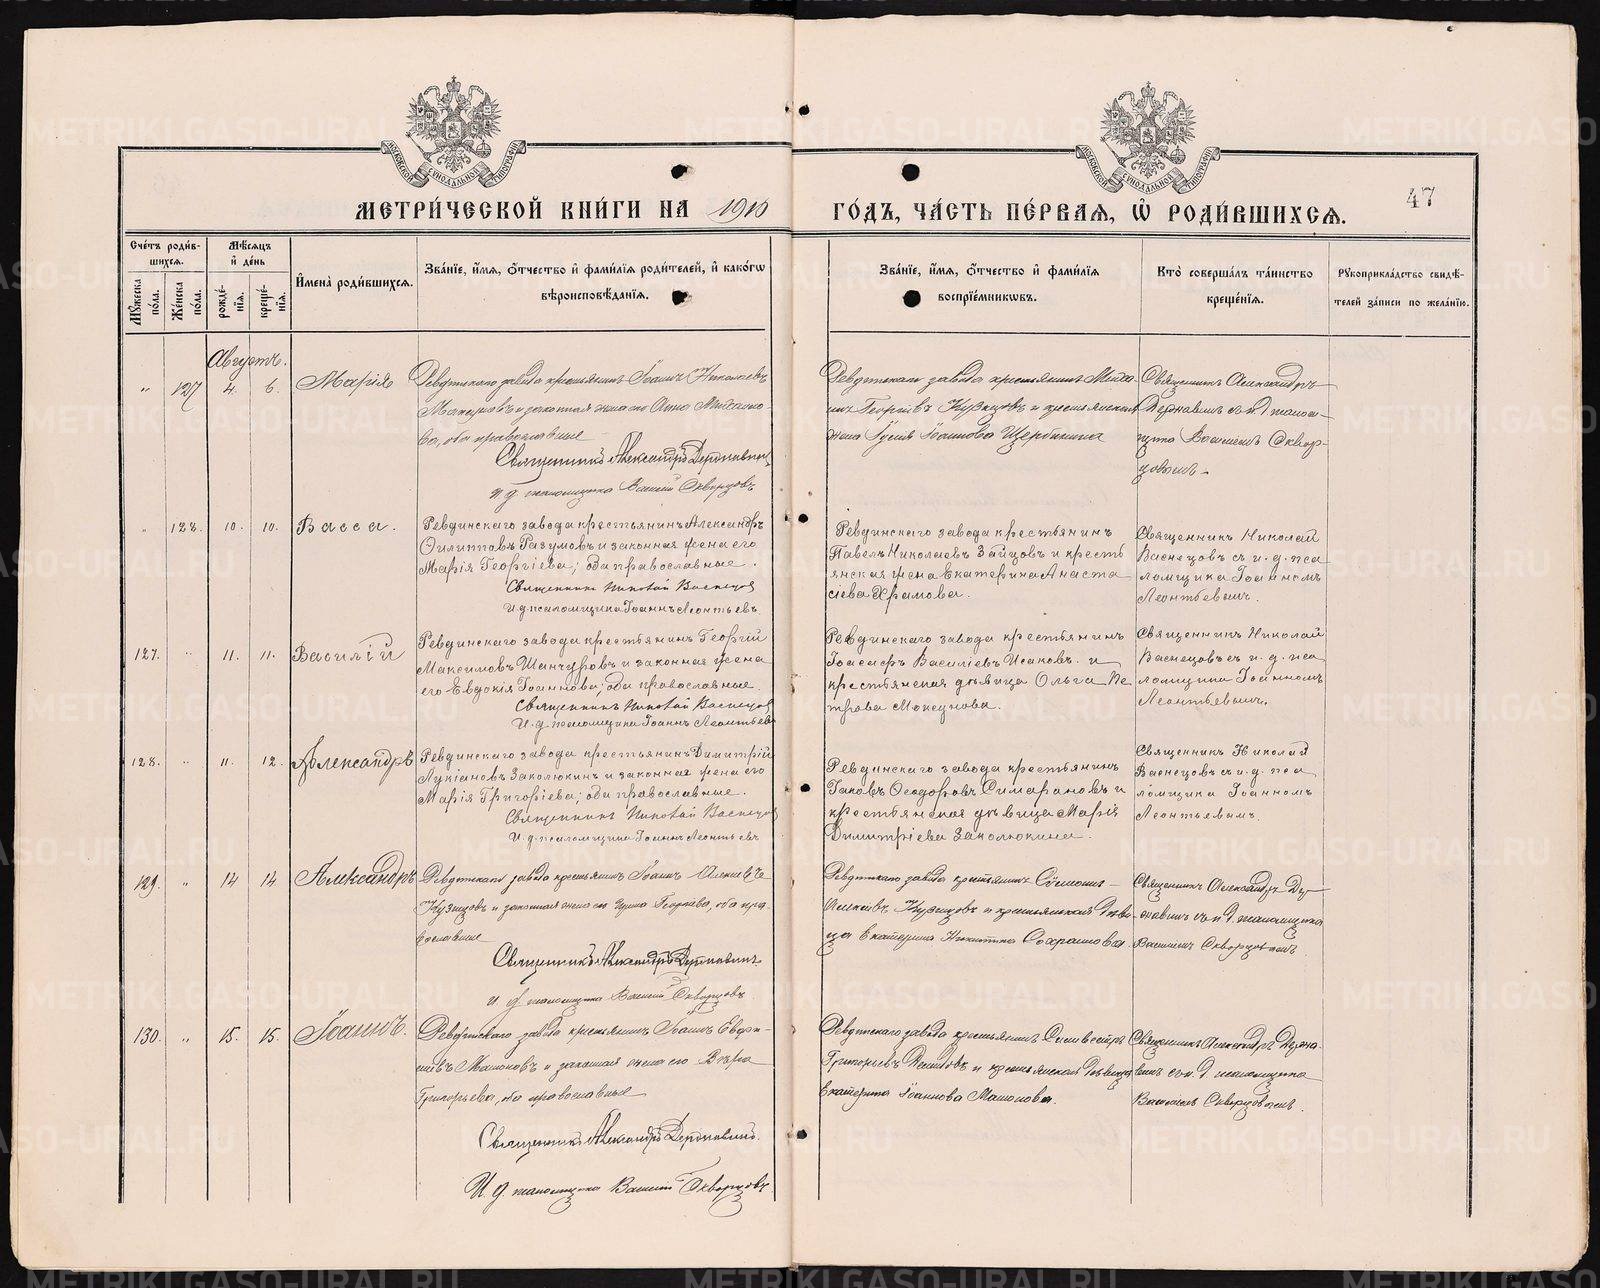 МЕТРИ́ЧЕСКОЙ КНИ́ГИ НА 1910 ГО́ДЪ, ЧА́СТЬ ПЕ́РВАѦ, Ѽ РОДИ́ВШИХСѦ.
47
Сче́тъ роди́в-
шихсѧ.
Мꙋжеска по́ла.
Же́нска по́ла.
Мѣ́сѧцъ
и҆ де́нь
рожде́-
нїѧ.
креще́-
нїѧ.
И҆мена̀ роди́вшихсѧ.
Зва́нїе, и҆́мѧ, ѻ҆́тчество и҆ фами́лїѧ роди́телей, и҆ како́гѡ
вѣроисповѣ́данїѧ.
Зва́нїе, и҆́мѧ, ѻ҆́тчество и҆ фами́лїѧ
воспрїе́мникѡвъ.
Кто̀ соверша́лъ та́инство
креще́нїѧ.
Рꙋкоприкла́дство свидѣ́-
телей за́писи по жела́нїю.
Августъ.
" 127 4. 6. Марія
Ревдинскаго завода крестьянинъ Іоаннъ Николаевъ
и законная жена его Анна Михайло-
ва, оба православные
Священникъ Александръ Державинъ
И д. псаломщика Василій Скворцовъ
Ревдинскаго завода крестьянинъ Миха-
илъ Георгіевъ Кузнецовъ и крестьянская
жена Іоаннова Щербинина
Священникъ Александръ
Державинъ съ и. д. псалом-
щика Василіемъ Сквор-
цовымъ.
" 128. 10. 10. Васса.
Ревдинскаго завода крестьянинъ Александръ
Филипповъ Разумовъ и законная жена его
Марія Георгіева; оба православные.
Священникъ Николай Васнецов
И. д. псаломщика Іоаннъ Леонтьевъ.
Ревдинскаго завода крестьянинъ
Павелъ Николаевъ Зайцовъ и кресть
янская жена Екатерина Анаста
сіева Храмова.
Священник Николай
Васнецовъ съ и. д. пса
ломщика Іоанномъ
Леонтьевым.
127. " 11. 11. Василій
Ревдинскаго завода крестьянинъ Георгій
Максимовъ Шанчуровъ и законная жена
его Евдокія Іоаннова, оба православные.
Священникъ Николай Васнецов
И. д. псаломщика Іоаннъ Леонтьевъ
Ревдинскаго завода крестьянинъ
Іоасафъ Василіевъ Исаковъ и
крестьянская дѣвица Ольга Пе
трова Мокеунова.
Священникъ Николай
Васнецовъ съ и. д. пса
ломщика Іоанномъ
Леонтьевым.
128. " 11. 12. Александръ
Ревдинскаго завода крестьянинъ Димитрій
Лукіановъ Заколюкинъ и законная жена его
Марія Григоріева; оба православные.
Священникъ Николай Васнецов
И. д. псаломщика Іоаннъ Леонтьевъ
Ревдинскаго завода крестьянинъ
Іаковъ Ѳеодоровъ Симарановъ и
крестьянская дѣвица Марія
Димитріева Заколюкина.
Священникъ Николай
Васнецовъ съ и. д. пса
ломщика Іоанномъ
Леонтьевымъ.
129. " 14 14 Александръ
Ревдинскаго завода крестьянинъ Іоаннъ Алексѣевъ
Кузнецовъ и законная жена его Георгіева, оба пра-
вославные
Священникъ Александръ Державинъ
и д. псаломщика Василій Скворцовъ
Ревдинскаго завода крестьянинъ
Алексѣевъ Кузнецовъ и крестьянская дѣви-
ца Екатерина Никитина
Священникъ Александръ Дер-
жавинъ съ и д. псаломщика
Василіемъ Скворцовымъ
130. " 15. 15. Іоаннъ.
Ревдинскаго завода крестьянинъ Іоаннъ
и законная жена его Вѣра
Григорьева, оба православные
Священникъ Александръ Державинъ.
И. д. псаломщика Василій Скворцовъ
Ревдинскаго завода крестьянинъ Сильвестръ
Григорьевъ и крестьянская дѣвица
Екатерина Іоаннова
Священникъ Александръ Держа-
винъ съ и. д. псаломщика
Василіемъ Скворцовымъ.
METRIKI.GASO-URAL.RU